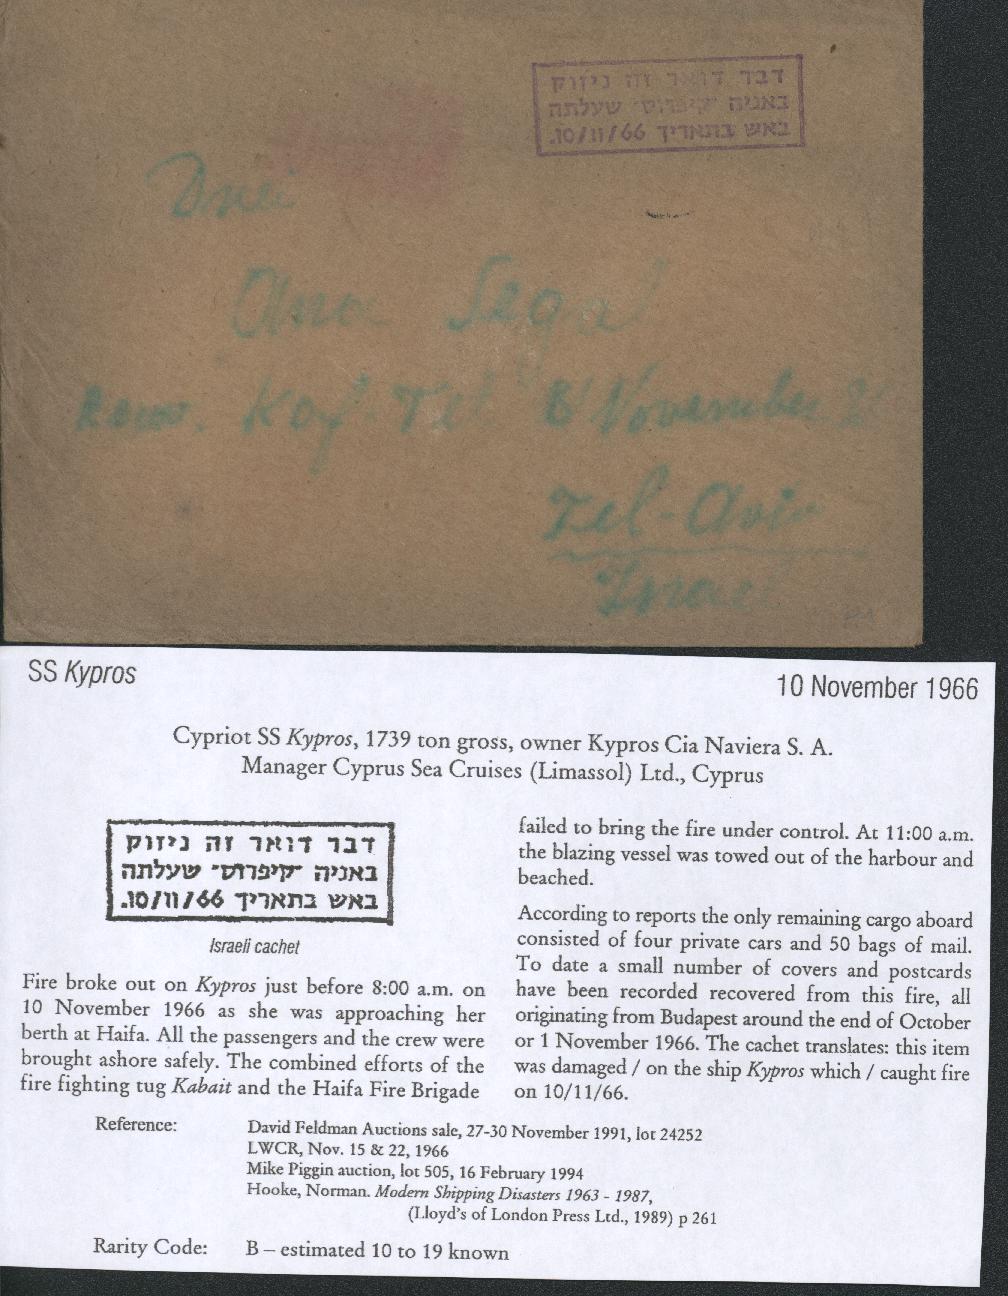 דבר דואר זה ניזוק
באניה "קיפרוס" שעלתה
באש בתאריך 10/11/66.
Dnei
Ana Segal
Kof. Tel 8 November
Tel-Aviv
Israel
SS Kypros
10 November 1966
Cypriot SS Kypros, 1739 ton gross, owner Kypros Cia Naviera S. A.
Manager Cyprus Sea Cruises (Limassol) Ltd., Cyprus
דבר דואר זה ניזוק
באניה "קיפרוס" שעלתה
באש בתאריך 10/11/66.
Israeli cachet
Fire broke out on Kypros just before 8:00 a.m. on
10 November 1966 as she was approaching her
berth at Haifa. All the passengers and the crew were
brought ashore safely. The combined efforts of the
fire fighting tug Kabait and the Haifa Fire Brigade
failed to bring the fire under control. At 11:00 a.m.
the blazing vessel was towed out of the harbour and
beached.
According to reports the only remaining cargo aboard
consisted of four private cars and 50 bags of mail.
To date a small number of covers and postcards
have been recorded recovered from this fire, all
originating from Budapest around the end of October
or 1 November 1966. The cachet translates: this item
was damaged / on the ship Kypros which / caught fire
on 10/11/66.
Reference:
David Feldman Auctions sale, 27-30 November 1991, lot 24252
LWCR, Nov. 15 & 22, 1966
Mike Piggin auction, lot 505, 16 February 1994
Hooke, Norman. Modern Shipping Disasters 1963 - 1987,
(Lloyd's of London Press Ltd., 1989) p 261
Rarity Code: B – estimated 10 to 19 known